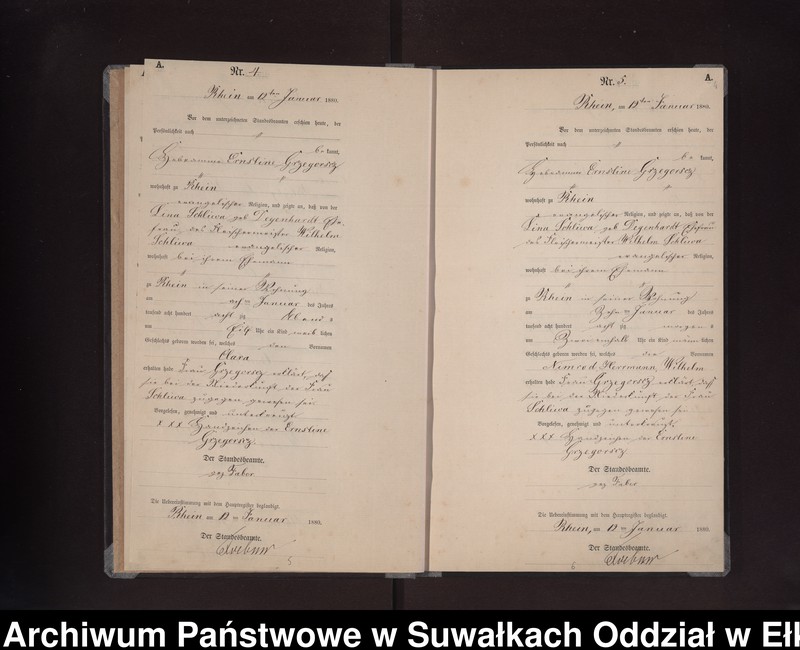 A.
Nr. 4
Rhein, am 12ten Januar 1889.
Vor dem unterzeichneten Standesbeamten erschien heute, der
Persönlichkeit nach
be kannt,
Hebeamme Ernstine Grzegorz
wohnhaft zu Rhein
evangelischer Religion, und zeigte an, daß von der
Lina Schliwa geb Degenhardt Ehe
frau des Fleischermeister Wilhelm
Schliwa evangelischer Religion,
wohnhaft bei ihrem Ehemann
zu Rhein in seiner Wohnung
am Januar des Jahres
tausend acht hundert acht zig Abend s
um Uhr ein Kind weib lichen
Geschlechts geboren worden sei, welches den Vornamen
Clara
erhalten habe Frau Grzegorz erklärt, daß
sie bei der Niederkunft der Frau
Schliwa zugegen gewesen sei
Vorgelesen, genehmigt und unterkreuzt
x x x Handzeichen der Ernstine
Grzegorz.
Der Standesbeamte.
gez Faber
Die Uebereinstimmung mit dem Hauptregister beglaubigt.
Rhein am 12ten Januar 1889.
Der Standesbeamte.
5
Nr. 5.
A.
Rhein, am 12ten Januar 1889.
Vor dem unterzeichneten Standesbeamten erschien heute, der
Persönlichkeit nach
be kannt,
Hebeamme Ernstine Grzegorz
wohnhaft zu Rhein
evangelischer Religion, und zeigte an, daß von der
Lina Schliwa geb Degenhardt Ehefrau
des Fleischermeister Wilhelm Schliwa
evangelischer Religion,
wohnhaft bei ihrem Ehemann
zu Rhein in seiner Wohnung
am Januar des Jahres
tausend acht hundert acht zig morgen s
um Uhr ein Kind männ lichen
Geschlechts geboren worden sei, welches die Vornamen
Nimrod Herrmann, Wilhelm
erhalten habe Frau Grzegorz erklärt daß
sie bei der Niederkunft der Frau
Schliwa zugegen gewesen sei
Vorgelesen, genehmigt und unterkreuzt
x x x Handzeichen der Ernstine
Grzegorz
Der Standesbeamte.
gez Faber
Die Uebereinstimmung mit dem Hauptregister beglaubigt.
Rhein, am 12ten Januar 1889.
Der Standesbeamte.
6
Archiwum Państwowe w Suwałkach Oddział w Ełk